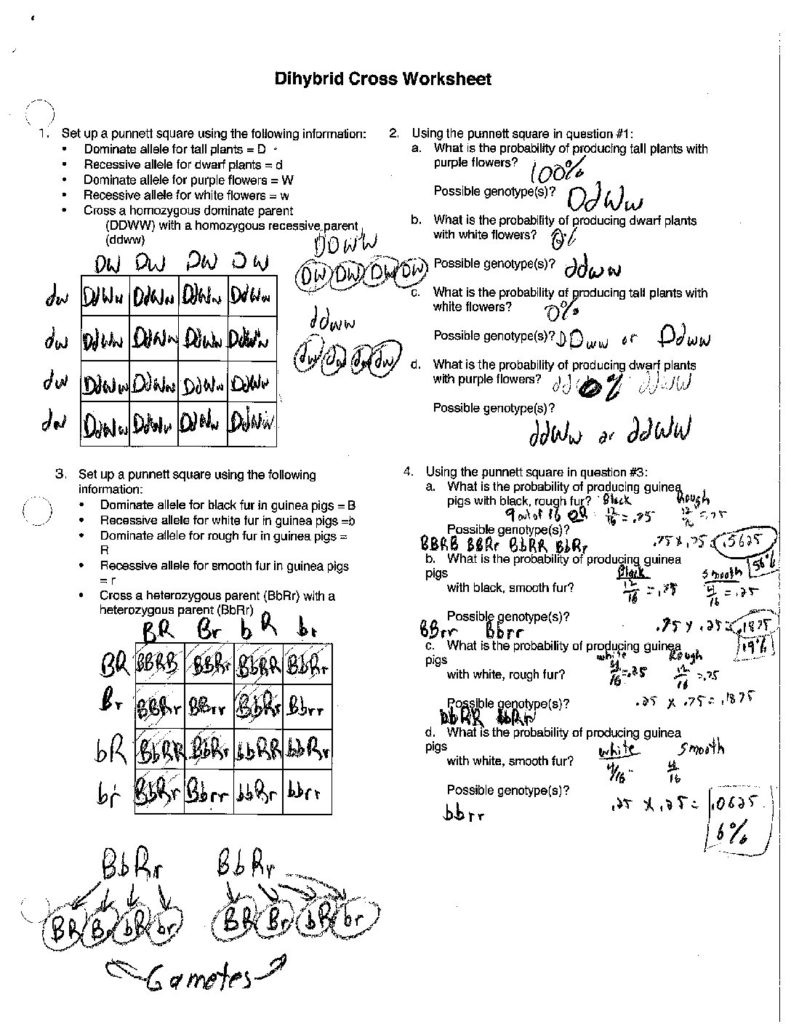 Dihybrid Cross Worksheet
1. Set up a punnett square using the following information:
• Dominate allele for tall plants = D
• Recessive allele for dwarf plants = d
• Dominate allele for purple flowers = W
• Recessive allele for white flowers = w
• Cross a homozygous dominate parent
(DDWW) with a homozygous recessive parent
(ddww)
DDWW
DW DW DW DW
DW DW DW DW
dw DdWw DdWw DdWw DdWw
ddww
dw DdWw DdWw DdWw DdWw
dw dw dw dw
dw DdWw DdWw DdWw DdWw
dw DdWw DdWw DdWw DdWw
2. Using the punnett square in question #1:
a. What is the probability of producing tall plants with
purple flowers? 100%
Possible genotype(s)? DdWw
b. What is the probability of producing dwarf plants
with white flowers? 0%
Possible genotype(s)? ddww
c. What is the probability of producing tall plants with
white flowers? 0%
Possible genotype(s)? DDww or Ddww
d. What is the probability of producing dwarf plants
with purple flowers? 0%
Possible genotype(s)?
ddWw or ddWW
3. Set up a punnett square using the following
information:
• Dominate allele for black fur in guinea pigs = B
• Recessive allele for white fur in guinea pigs =b
• Dominate allele for rough fur in guinea pigs =
R
• Recessive allele for smooth fur in guinea pigs
= r
• Cross a heterozygous parent (BbRr) with a
heterozygous parent (BbRr)
BR Br bR br
BR BBRR BBRr BbRR BbRr
Br BBRr BBrr BbRr Bbrr
bR BbRR BbRr bbRR bbRr
br BbRr Bbrr bbRr bbrr
BbRr BbRr
BR Br bR br BR Br bR br
Gametes
4. Using the punnett square in question #3:
a. What is the probability of producing guinea
pigs with black, rough fur? Black Rough
9 out of 16 OR 12/16 = .75 = .75
Possible genotype(s)? .75 x .75 = .5625
BBRR BBRr BbRR BbRr 56%
b. What is the probability of producing guinea
pigs Black Smooth
with black, smooth fur? 12/16 = .75 4/16 = .25
Possible genotype(s)? .75 x .25 = .1875
BBrr Bbrr 19%
c. What is the probability of producing guinea
pigs white Rough
with white, rough fur? 4/16 = .25 12/16 = .75
Possible genotype(s)? .25 x .75 = .1875
bbRR bbRr
d. What is the probability of producing guinea
pigs white Smooth
with white, smooth fur? 4/16 4/16
Possible genotype(s)? .25 x .25 = .0625
bbrr 6%